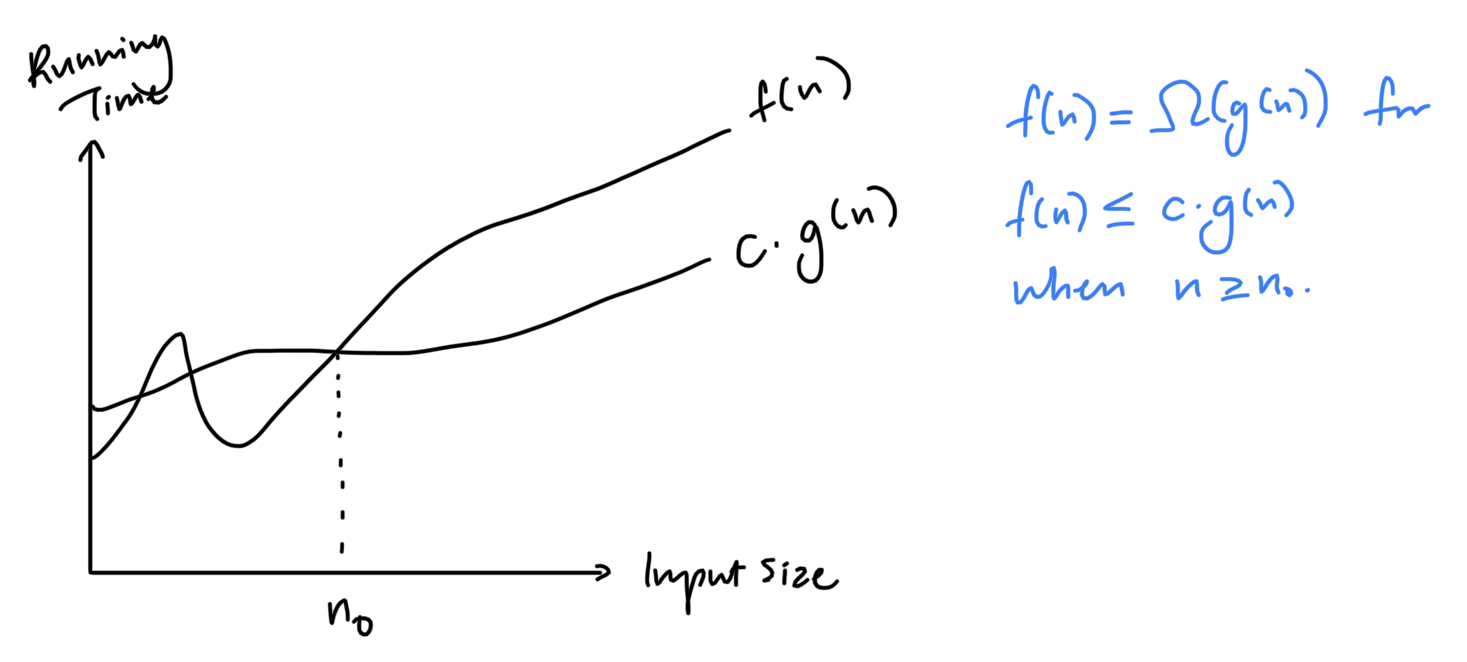 Running
Time
f(n)
c·g(n)
Input size
n₀
f(n) = Ω(g(n)) for
f(n) ≤ c·g(n)
when n ≥ n₀.